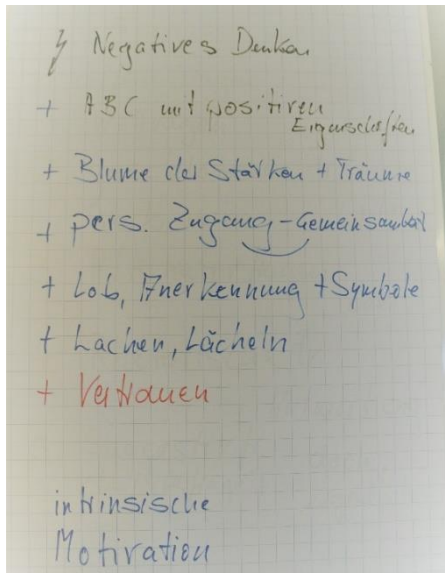 ↯ Negatives Denken
+ ABC mit positiven
Eigenschaften
+ Blume der Stärken + Träume
+ pers. Zugang - Gemeinsamkeit
+ Lob, Anerkennung + Symbole
+ Lachen, Lächeln
+ Vertrauen
intrinsische
Motivation